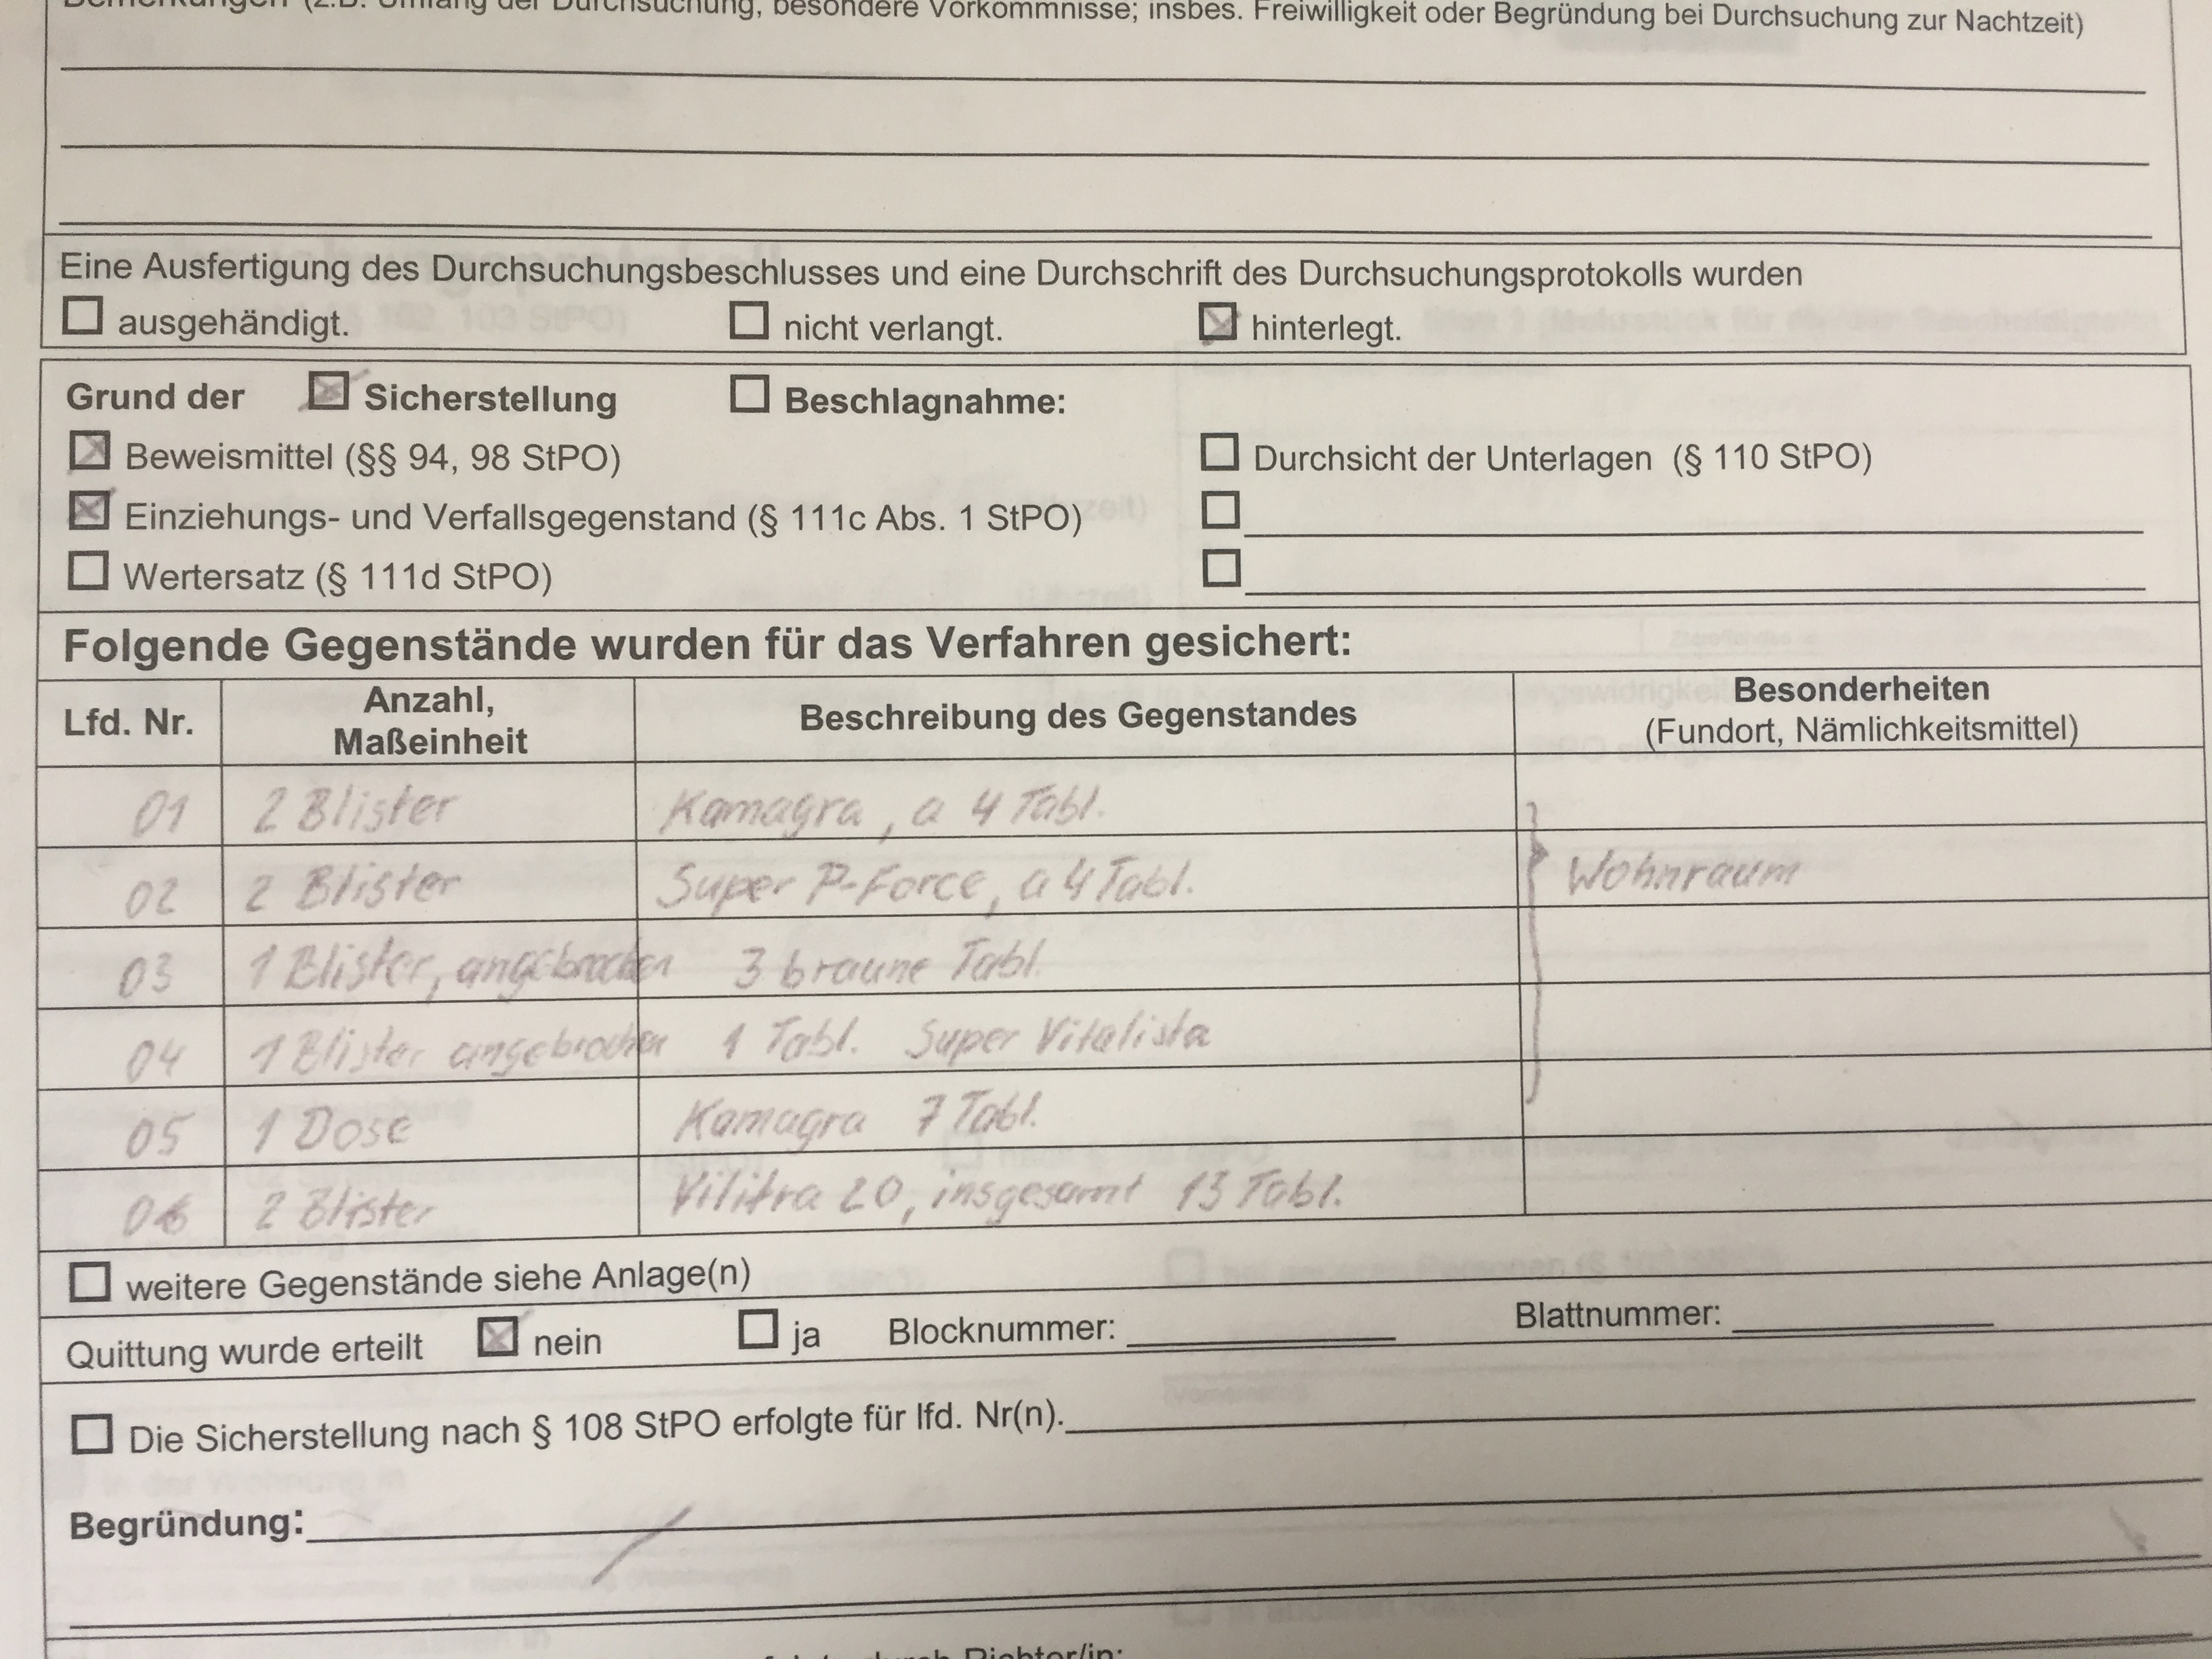 Bemerkungen (z.B. Umfang der Durchsuchung, besondere Vorkommnisse; insbes. Freiwilligkeit oder Begründung bei Durchsuchung zur Nachtzeit)
Eine Ausfertigung des Durchsuchungsbeschlusses und eine Durchschrift des Durchsuchungsprotokolls wurden
☐ ausgehändigt. ☐ nicht verlangt. ☒ hinterlegt.
Grund der ☒ Sicherstellung ☐ Beschlagnahme:
☒ Beweismittel (§§ 94, 98 StPO) ☐ Durchsicht der Unterlagen (§ 110 StPO)
☒ Einziehungs- und Verfallsgegenstand (§ 111c Abs. 1 StPO) ☐
☐ Wertersatz (§ 111d StPO) ☐
Folgende Gegenstände wurden für das Verfahren gesichert:
Lfd. Nr. Anzahl, Maßeinheit Beschreibung des Gegenstandes Besonderheiten (Fundort, Nämlichkeitsmittel)
01 2 Blister Kamagra, a 4 Tabl.
02 2 Blister Super P-Force, a 4 Tabl. Wohnraum
03 1 Blister, angebrochen 3 braune Tabl.
04 1 Blister angebrochen 1 Tabl. Super Vitalista
05 1 Dose Kamagra 7 Tabl.
06 2 Blister Vilitra 20, insgesamt 13 Tabl.
☐ weitere Gegenstände siehe Anlage(n)
Quittung wurde erteilt ☒ nein ☐ ja Blocknummer: Blattnummer:
☐ Die Sicherstellung nach § 108 StPO erfolgte für lfd. Nr(n).
Begründung:
durch Richter/in: